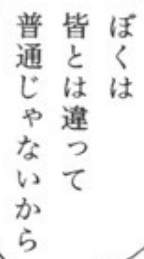 ぼくは
皆とは違って
普通じゃないから